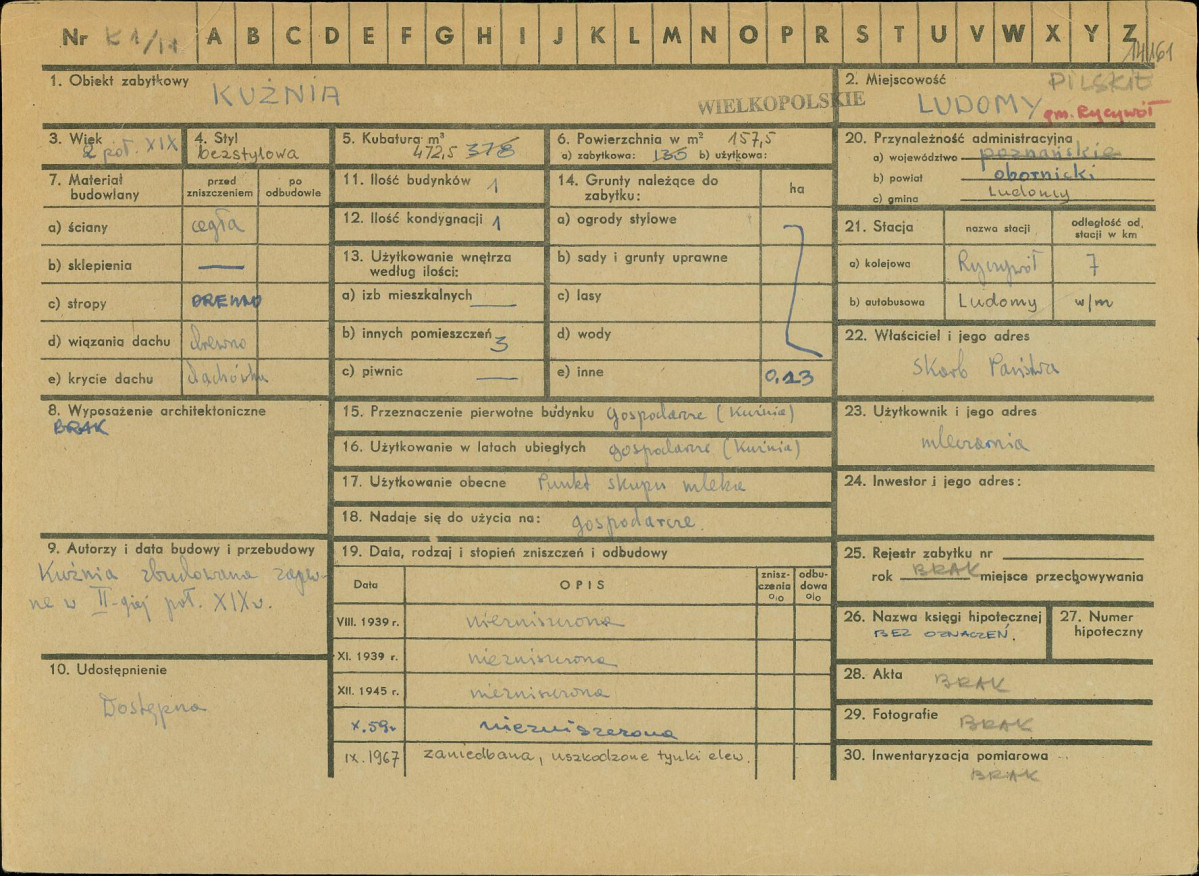 Nr K1/11 A B C D E F G H I J K L M N O P R S T U V W X Y Z
14161
1. Obiekt zabytkowy
KUŹNIA
WIELKOPOLSKIE
2. Miejscowość
PILSKIE
LUDOMY gm. Ryczywół
3. Wiek
2 poł. XIX
4. Styl
bezstylowa
5. Kubatura m³
472,5 378
6. Powierzchnia w m² 157,5
a) zabytkowa: 135 b) użytkowa:
7. Materiał budowlany
przed zniszczeniem
po odbudowie
a) ściany cegła
b) sklepienia —
c) stropy DREWNO
d) wiązania dachu drewno
e) krycie dachu dachówka
8. Wyposażenie architektoniczne
BRAK
9. Autorzy i data budowy i przebudowy
Kuźnia zbudowana zapew-
ne w II-giej poł. XIX w.
10. Udostępnienie
Dostępna
11. Ilość budynków 1
12. Ilość kondygnacji 1
13. Użytkowanie wnętrza
według ilości:
a) izb mieszkalnych —
b) innych pomieszczeń 3
c) piwnic —
14. Grunty należące do
zabytku:
ha
a) ogrody stylowe
b) sady i grunty uprawne
c) lasy
d) wody
e) inne 0,23
15. Przeznaczenie pierwotne budynku gospodarcze (Kuźnia)
16. Użytkowanie w latach ubiegłych gospodarcze (Kuźnia)
17. Użytkowanie obecne Punkt skupu mleka
18. Nadaje się do użycia na: gospodarcze.
19. Data, rodzaj i stopień zniszczeń i odbudowy
Data
OPIS
znisz-
czenia
%
odbu-
dowa
%
VIII. 1939 r. niezniszczona
XI. 1939 r. niezniszczona
XII. 1945 r. niezniszczona
X.59r niezniszczona
IX. 1967 zaniedbana, uszkodzone tynki elew.
20. Przynależność administracyjna
a) województwo poznańskie
b) powiat obornicki
c) gmina Ludomy
21. Stacja
nazwa stacji
odległość od
stacji w km
a) kolejowa Ryczywół 7
b) autobusowa Ludomy w/m
22. Właściciel i jego adres
Skarb Państwa
23. Użytkownik i jego adres
mleczarnia
24. Inwestor i jego adres:
25. Rejestr zabytku nr
rok BRAK miejsce przechowywania
26. Nazwa księgi hipotecznej
BEZ OZNACZEŃ.
27. Numer
hipoteczny
28. Akta BRAK
29. Fotografie BRAK
30. Inwentaryzacja pomiarowa
BRAK